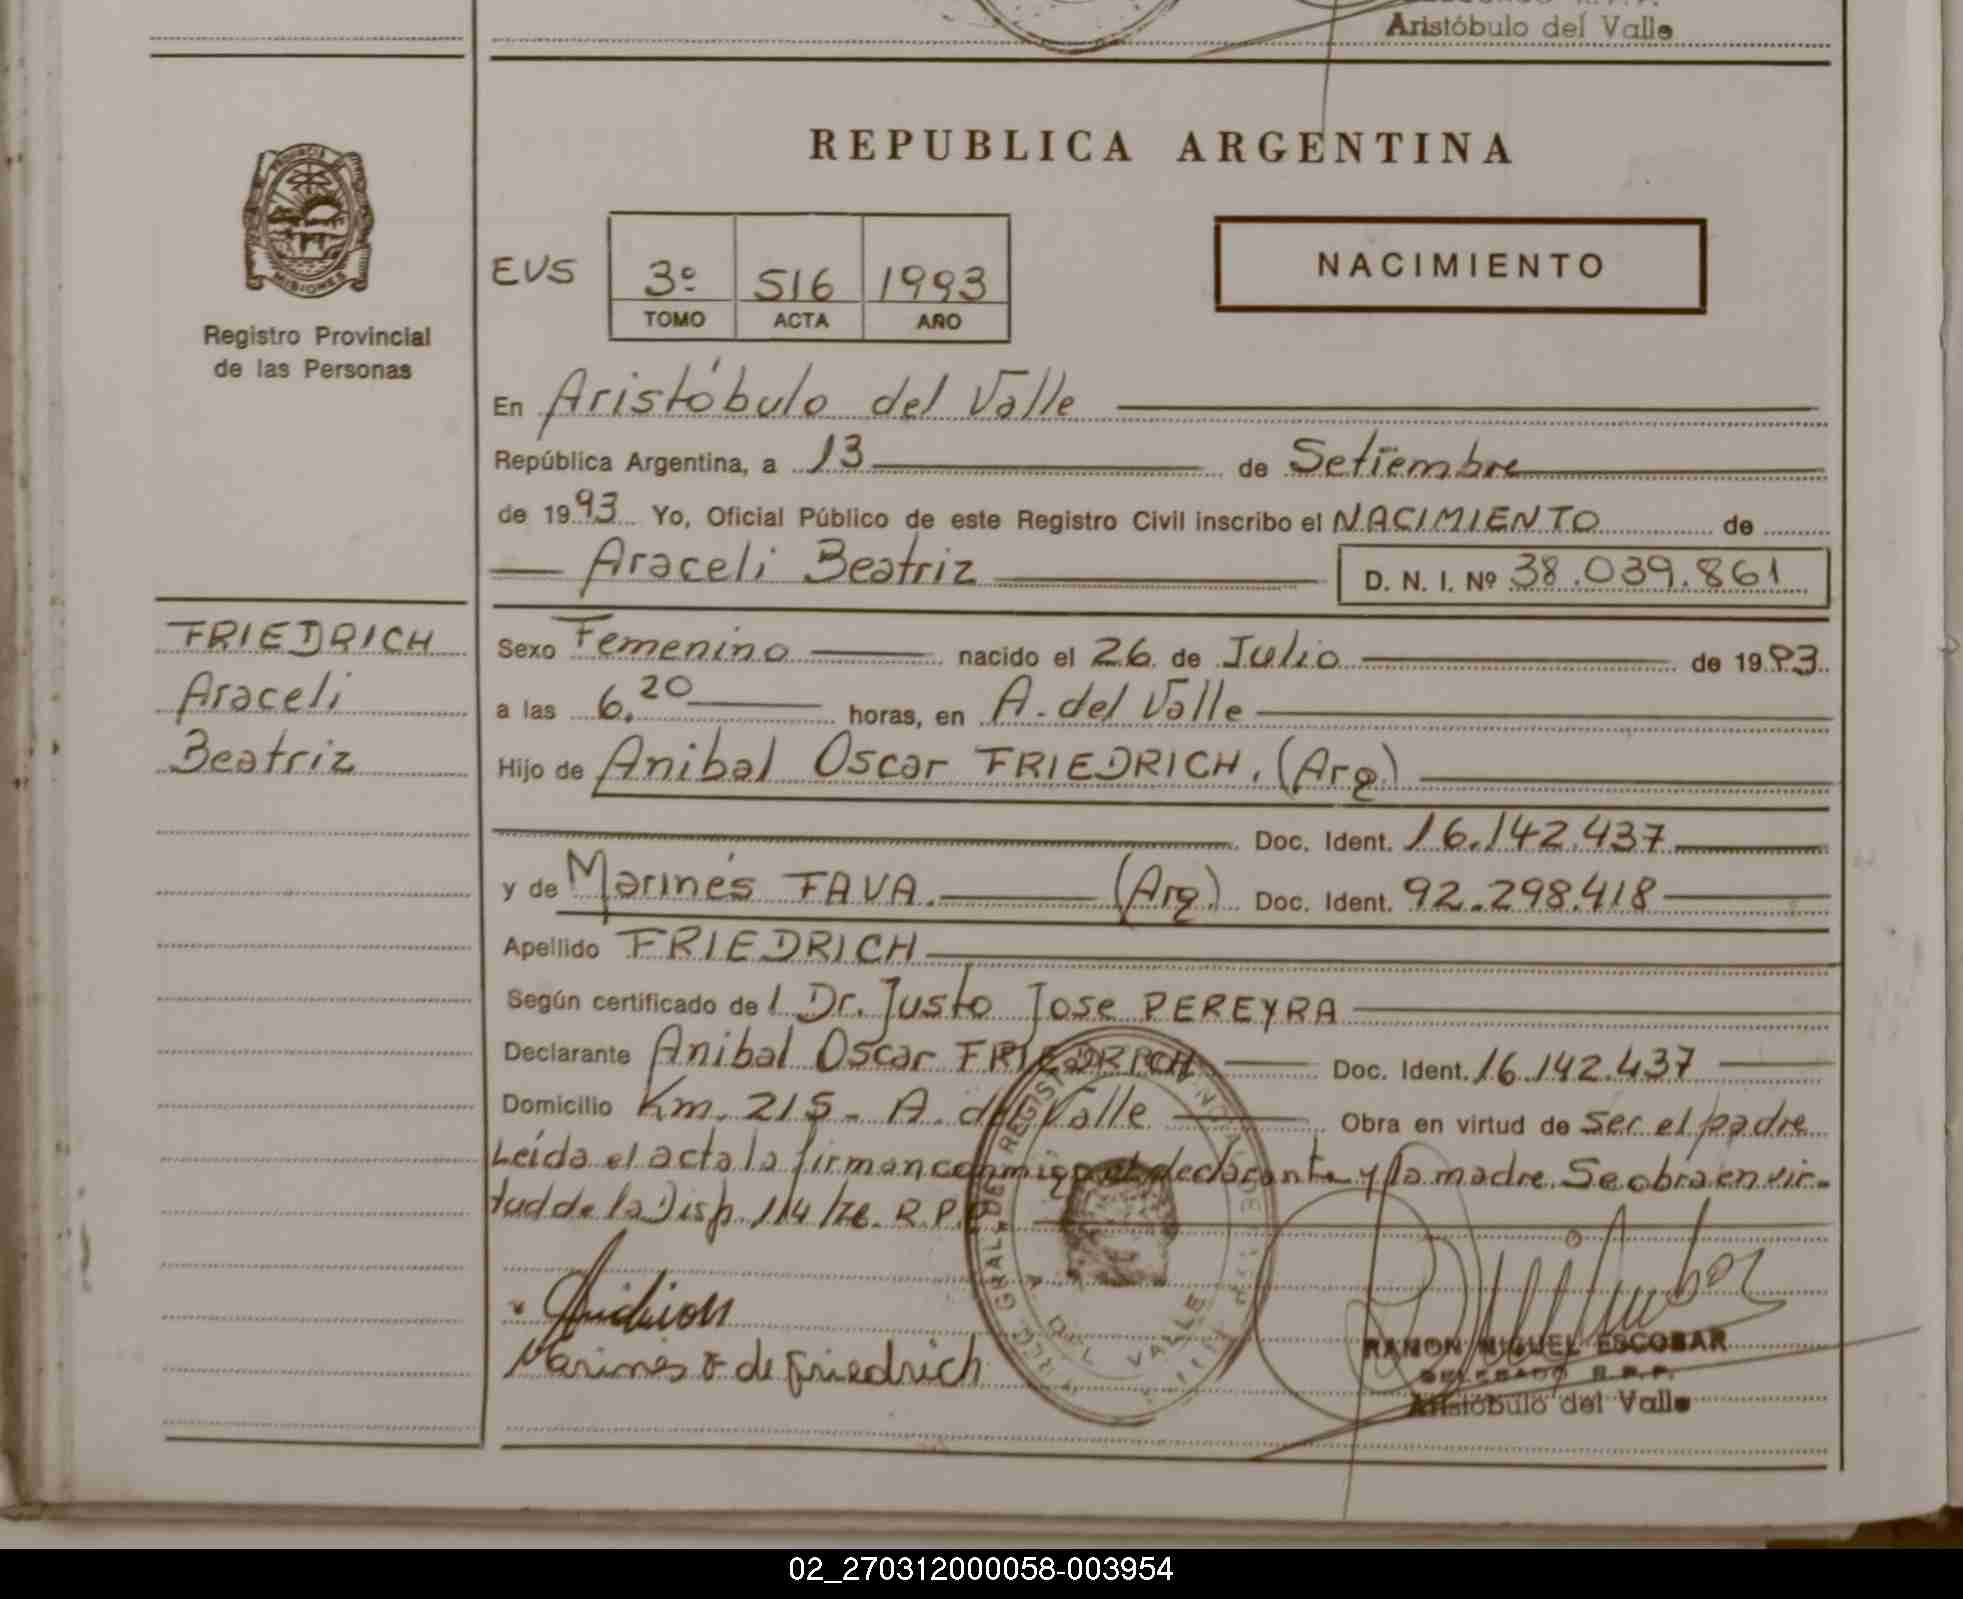 Aristóbulo del Valle
REPUBLICA ARGENTINA
PROVINCIA DE
MISIONES
Registro Provincial
de las Personas
EVS 3º 516 1993
TOMO ACTA AÑO
NACIMIENTO
En Aristóbulo del Valle
República Argentina, a 13 de Setiembre
de 1993 Yo, Oficial Público de este Registro Civil inscribo el NACIMIENTO de
Araceli Beatriz D. N. I. Nº 38.039.861
FRIEDRICH
Araceli
Beatriz
Sexo Femenino nacido el 26 de Julio de 1993
a las 6,20 horas, en A. del Valle
Hijo de Anibal Oscar FRIEDRICH. (Arg.)
Doc. Ident. 16.142.437
y de Marinés FAVA. (Arg.) Doc. Ident. 92.298.418
Apellido FRIEDRICH
Según certificado de l Dr. Justo Jose PEREYRA
Declarante Anibal Oscar FRIEDRICH Doc. Ident. 16.142.437
Domicilio Km. 215 - A. del Valle Obra en virtud de ser el padre
Leída el acta la firman conmigo el declarante y la madre. Se obra en vir-
tud de la Disp. 114/76. R.P.P.
Marines F de Friedrich
A. DEL VALLE
RAMON MIGUEL ESCOBAR
DELEGADO R.P.P.
Aristóbulo del Valle
02_270312000058-003954